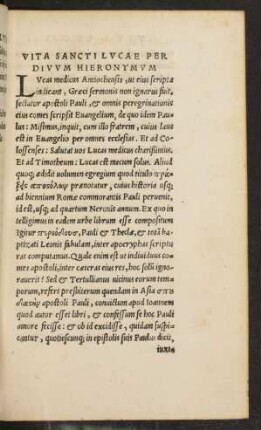 VITA SANCTI LVCAE PER
DIVVM HIERONYMVM
LVcas medicus Antiochensis, ut eius scripta
indicant, Græci sermonis non ignarus fuit,
sectator apostoli Pauli, & omnis peregrinationis
eius comes scripsit Euangelium, de quo idem Pau-
lus: Misimus, inquit, cum illo fratrem, cuius laus
est in Euangelio per omnes ecclesias. Et ad Co-
lossenses: Salutat uos Lucas medicus charissimus.
Et ad Timotheum: Lucas est mecum solus. Aliud
quoq; ædidit uolumen egregium quod titulo πράξεις
ἀποστόλων prænotatur, cuius historia usq;
ad biennium Romæ commorantis Pauli peruenit,
id est, usq; ad quartum Neronis annum. Ex quo in
telligimus in eadem urbe librum esse compositum
Igitur περιόδους, Pauli & Theclæ, & totā ba-
ptizati Leonis fabulam, inter apocryphas scriptu
ras computamus. Quale enim est ut indiuiduus co-
mes apostoli, inter cæteras eius res, hoc solū igno-
rauerit? Sed & Tertullianus uicinus eorum tem-
porum, refert presbiterum quendam in Asia
apostoli Pauli, conuictum apud Ioannem
quod autor esset libri, & confessum se hoc Pauli
amore fecisse: & ob id excidisse, quidam suspi-
cantur, quotiescunq; in epistolis suis Paulus dicit,
iuxta